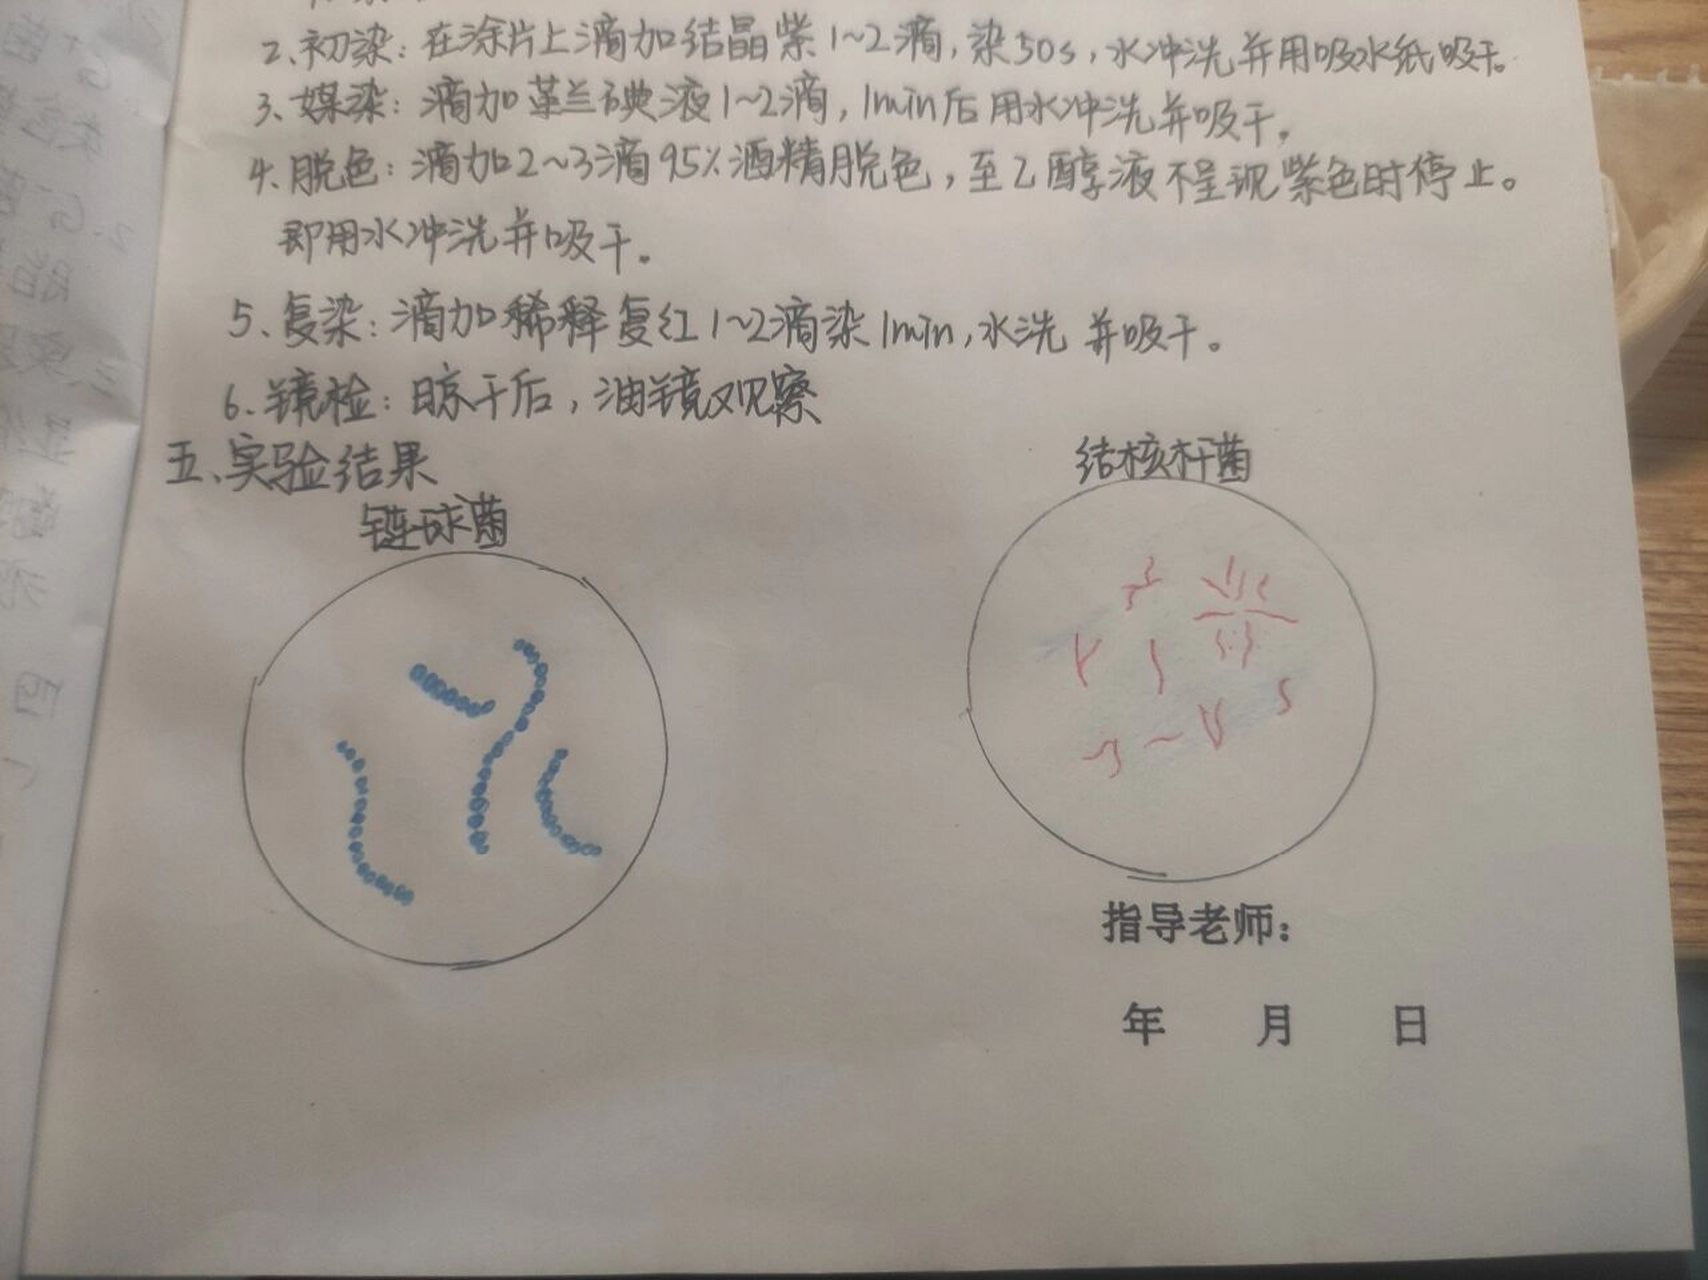 2、初染：在涂片上滴加结晶紫1~2滴，染50s，水冲洗并用吸水纸吸干。
3、媒染：滴加革兰碘液1~2滴，1min后用水冲洗并吸干。
4、脱色：滴加2~3滴95%酒精脱色，至乙醇液不呈现紫色时停止。
即用水冲洗并吸干。
5、复染：滴加稀释复红1~2滴染1min，水洗并吸干。
6、镜检：晾干后，油镜观察
五、实验结果
链球菌
结核杆菌
指导老师：
年 月 日